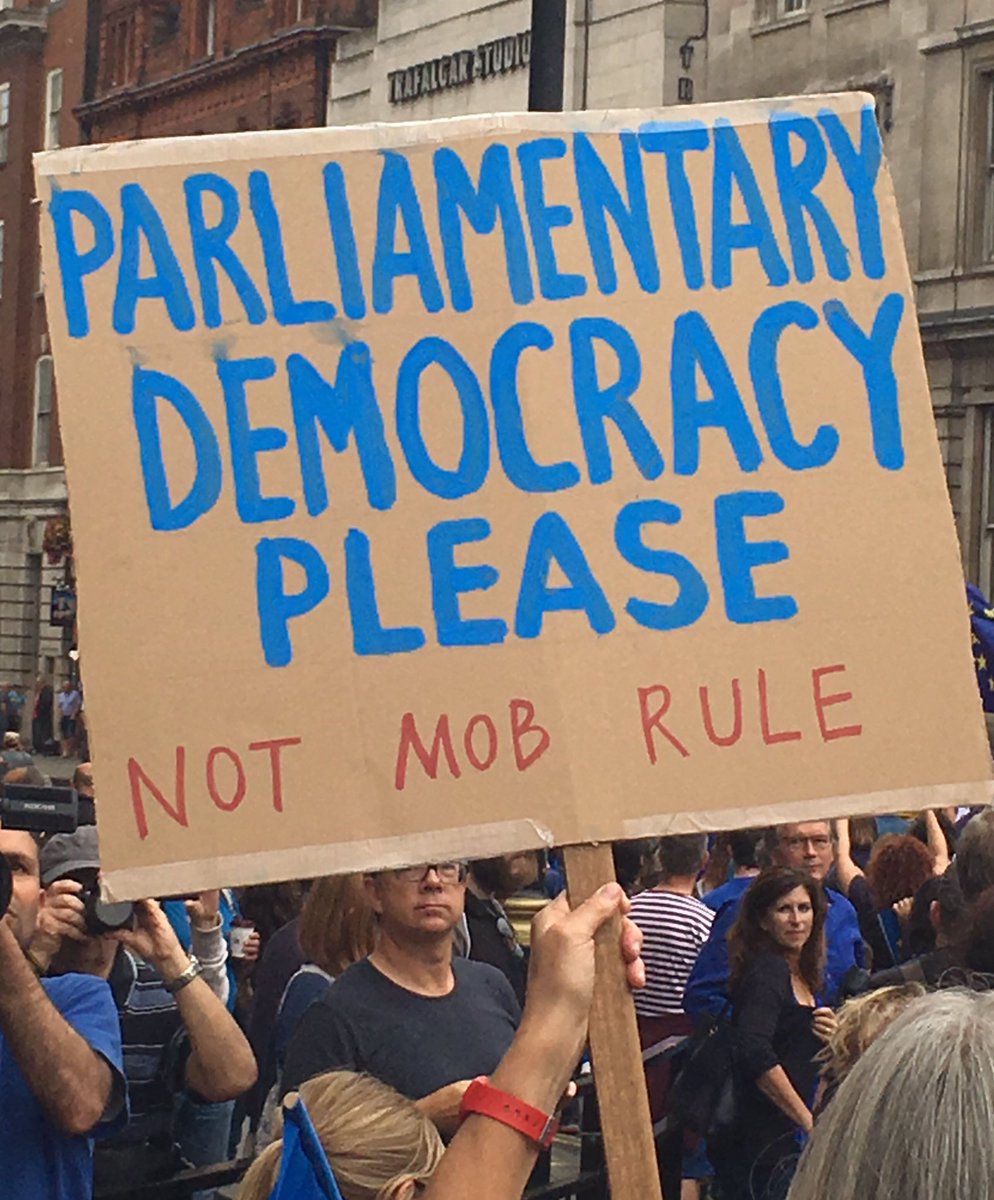 TRAFALGAR STUDIO
PARLIAMENTARY
DEMOCRACY
PLEASE
NOT MOB RULE